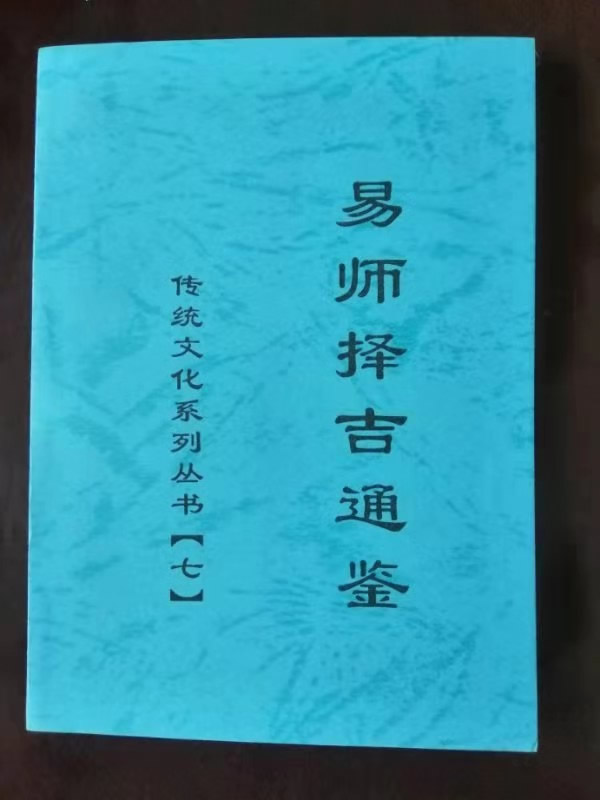 易师择吉通鉴
传统文化系列丛书【七】